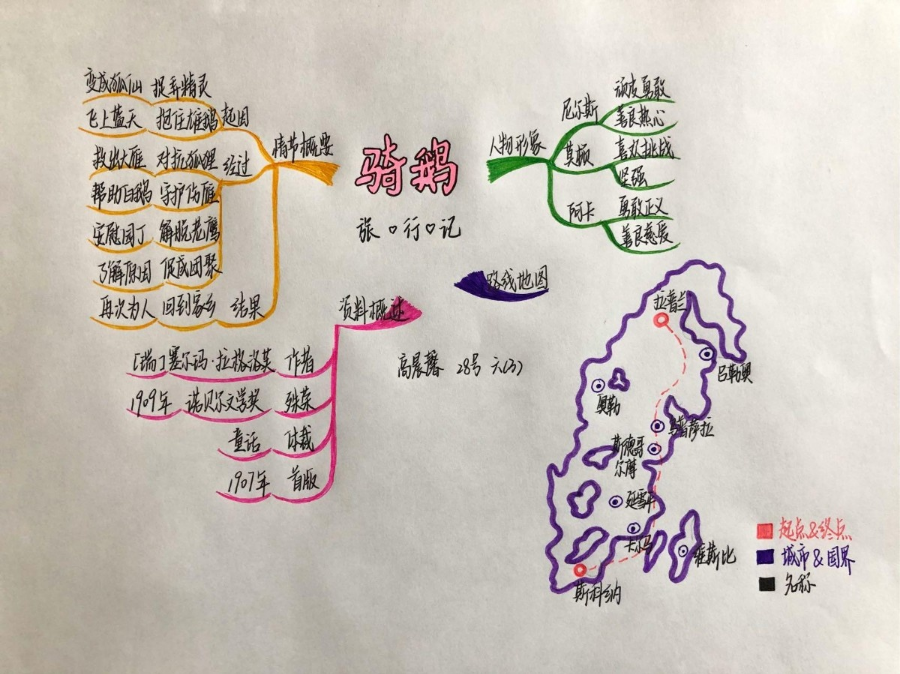 骑鹅
旅♡行♡记
情节概要
起因
捉弄精灵
变成狐仙
抱住雄鹅
飞上蓝天
经过
对抗狐狸
救出大雁
守护伤雁
帮助白鹅
解脱老鹰
安慰园丁
促成团聚
了解原因
结果
回到家乡
再次为人
人物形象
尼尔斯
顽皮勇敢
善良热心
莫顿
喜欢挑战
坚强
阿卡
勇敢正义
善良慈爱
资料概述
作者
[瑞]塞尔玛·拉格洛芙
殊荣
诺贝尔文学奖
1909年
体裁
童话
首版
1907年
高晨馨 28号 六(3)
路线地图
拉普兰
吕勒奥
奥勒
乌普萨拉
斯德哥
尔摩
延雪平
卡尔马
维斯比
斯科纳
起点&终点
城市&国界
名称